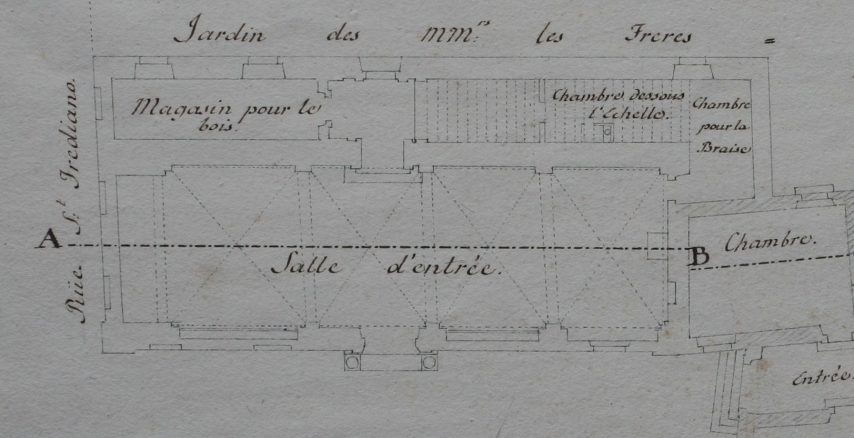 Jardin des mm.rs les Freres =
Rüe S.t Frediano.
Magasin pour le
bois.
Chambre dessous
l'Echelle.
Chambre
pour la
Braise
A
B
Salle d'entrée.
Chambre.
Entrée.